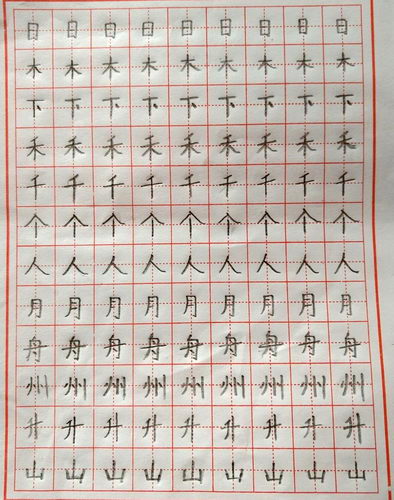 日日日日日日日日日
木木木木木木木木木
下下下下下下下下下
禾禾禾禾禾禾禾禾禾
千千千千千千千千千
个个个个个个个个个
人人人人人人人人人
月月月月月月月月月
舟舟舟舟舟舟舟舟舟
州州州州州州州州州
升升升升升升升升升
山山山山山山山山山